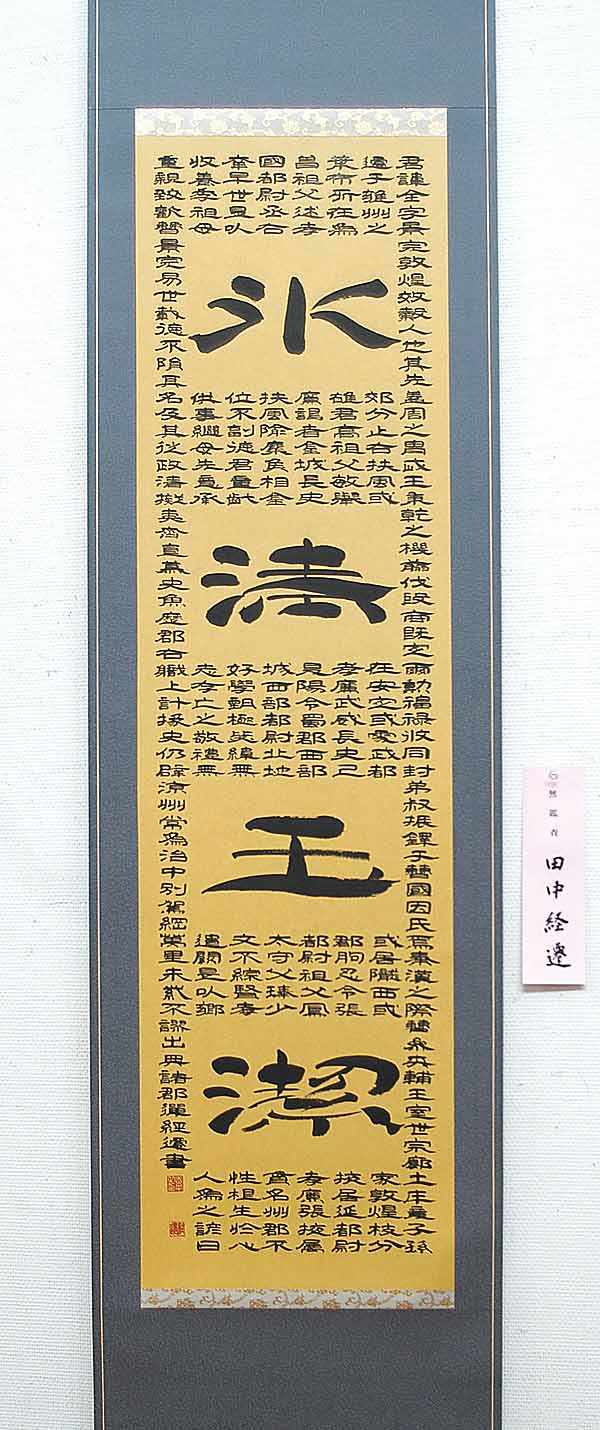 冰清玉潔
君諱全字景完敦煌效穀人也其先蓋周之冑武王秉乾之機翦伐殷商既定爾勳福祿攸同封弟叔振鐸于曹國因氏焉秦漢之際曹參夾輔王室世宗廓土斥竟子孫
遷于雍州之郊分止右扶風或在安定或處武都或居隴西或家敦煌枝分
葉布所在為雄君高祖父敏舉孝廉武威長史巴郡朐忍令張掖居延都尉
曾祖父述孝廉謁者金城長史夏陽令蜀郡西部都尉祖父鳳孝廉張掖屬
國都尉丞右扶風隃麋侯相金城西部都尉北地太守父琫少貫名州郡不
幸早世是以位不副德君童齔好學甄極毖緯無文不綜賢孝性根生於心
收養季祖母供事繼母先意承志存亡之敬禮無遺闕是以鄉人為之諺曰
重親致歡曹景完易世載德不隕其名及其從政清擬夷齊直慕史魚歷郡右職上計掾史仍辟涼州常為治中別駕紀綱萬里朱紫不謬出典諸郡彈經遷書
無鑑査
田中経遷